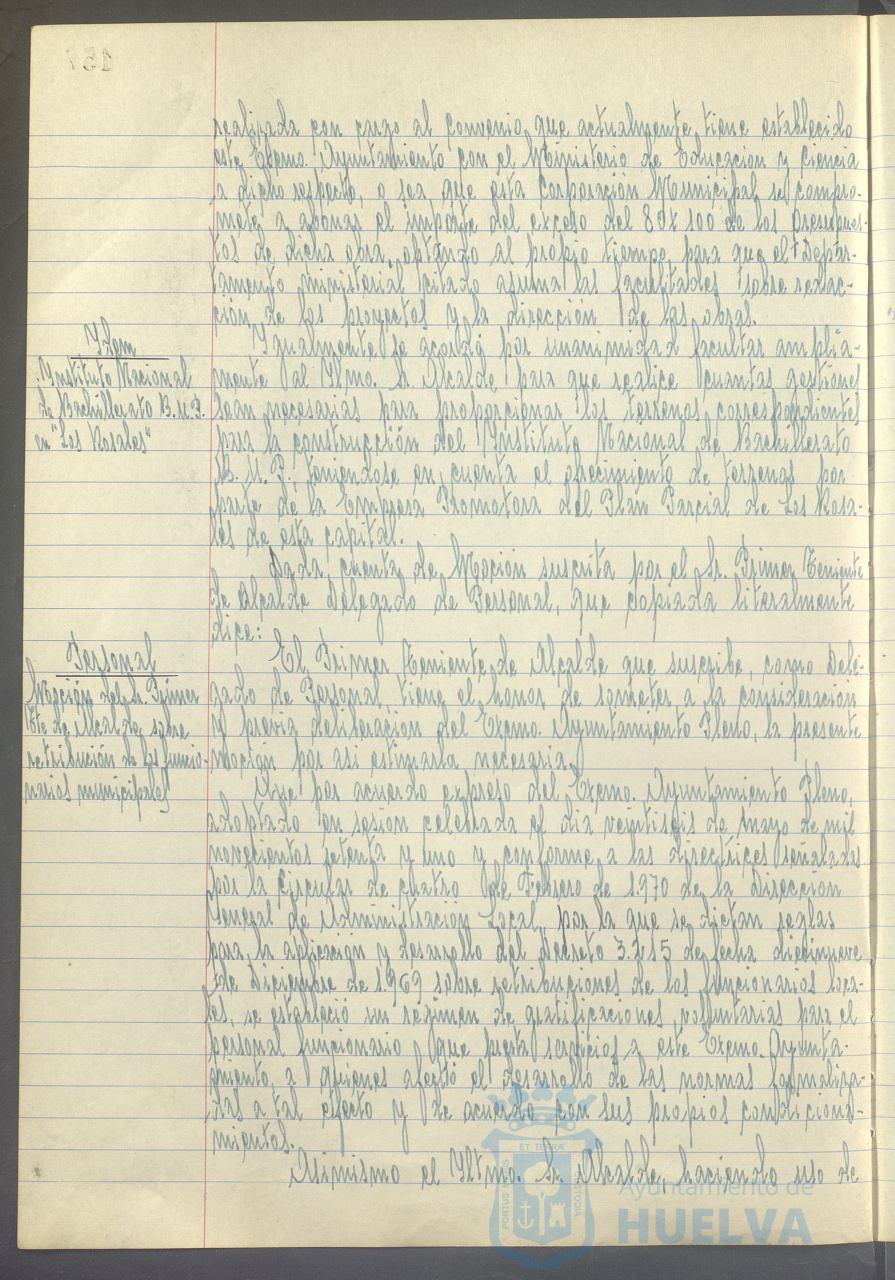 realizada con cargo al convenio que actualmente tiene establecido
este Excmo. Ayuntamiento con el Ministerio de Educación y Ciencia
a dicho respecto, o sea que esta Corporación Municipal se compro-
mete a abonar el importe del exceso del 80% 100 de los presupues-
tos de dicha obra, optando al propio tiempo, para que el Depar-
tamento ministerial citado asuma las facultades sobre redac-
ción de los proyectos y la dirección de las obras.
Idem
Instituto Nacional
de Bachillerato B.U.P.
en "Los Rosales"
Igualmente se acordó por unanimidad facultar amplia-
mente al Iltmo. Sr. Alcalde para que realice cuantas gestiones
sean necesarias para proporcionar los terrenos correspondientes
para la construcción del Instituto Nacional de Bachillerato
B.U.P., teniéndose en cuenta el ofrecimiento de terrenos por
parte de la Empresa Promotora del Plan Parcial de Los Rosa-
les de esta capital.
Dada cuenta de Moción suscrita por el Sr. Primer Teniente
de Alcalde Delegado de Personal, que copiada literalmente
dice:
Personal
Moción del Sr. Primer
Tte de Alcalde sobre
retribución de los funcio-
narios municipales
El Primer Teniente de Alcalde que suscribe, como Dele-
gado de Personal, tiene el honor de someter a la consideración
y previa deliberación del Excmo. Ayuntamiento Pleno, la presente
moción por así estimarla necesaria.
Que por acuerdo expreso del Excmo. Ayuntamiento Pleno,
adoptado en sesión celebrada el día veintiseis de mayo de mil
novecientos setenta y uno y conforme a las directrices señaladas
por la Circular de cuatro de Febrero de 1.970 de la Dirección
General de Administración Local, por la que se dictan reglas
para la aplicación y desarrollo del Decreto 3.215 de fecha diecinueve
de Diciembre de 1.969 sobre retribuciones de los funcionarios loca-
les, se estableció un régimen de gratificaciones voluntarias para el
personal funcionario que presta servicios a este Excmo. Ayunta-
miento, a quienes afectó el desarrollo de las normas formaliza-
das a tal efecto y de acuerdo con sus propios condiciona-
mientos.
Asimismo el Iltmo. Sr. Alcalde, haciendo uso de
PORTUS MARIS ET TERRAE CUSTODIA
Ayuntamiento de
HUELVA